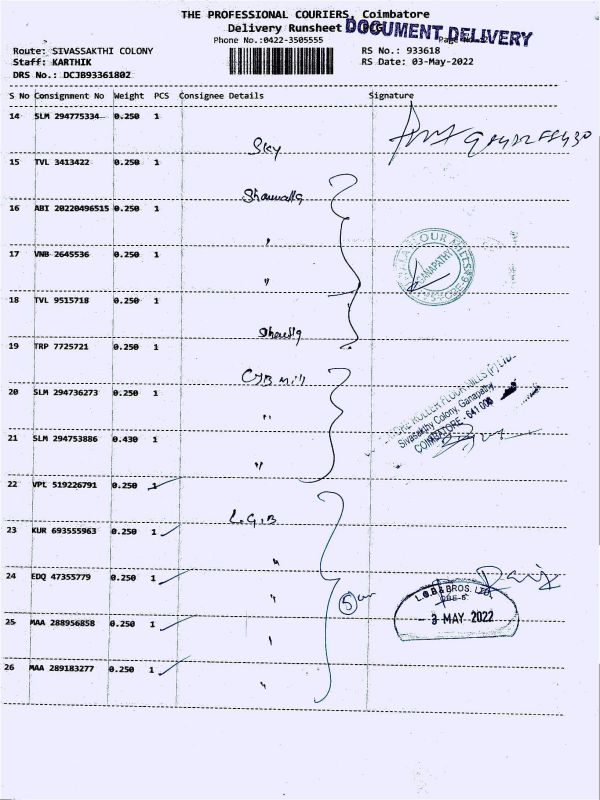 THE PROFESSIONAL COURIERS, Coimbatore
Delivery Runsheet
DOCUMENT DELIVERY
Phone No.:0422-3505555
Route: SIVASSAKTHI COLONY
RS No.: 933618
Staff: KARTHIK
RS Date: 03-May-2022
DRS No.: DCJB93361802
S No Consignment No Weight PCS Consignee Details Signature
14 SLM 294775334 0.250 1
Sky
15 TVL 3413422 0.250 1
16 ABI 20220496515 0.250 1
"
17 VNB 2645536 0.250 1
"
18 TVL 9515718 0.250 1
19 TRP 7725721 0.250 1
20 SLM 294736273 0.250 1
"
Sivasakthy Colony, Ganapathy,
COIMBATORE - 641 006
21 SLM 294753886 0.430 1
"
22 VPL 519226791 0.250 1
L.G.B
23 KUR 693555963 0.250 1
"
24 EDQ 47355779 0.250 1
"
5
L.G.B & BROS. LTD.
CBE-6.
- 3 MAY 2022
25 MAA 288956858 0.250 1
"
26 MAA 289183277 0.250 1
"